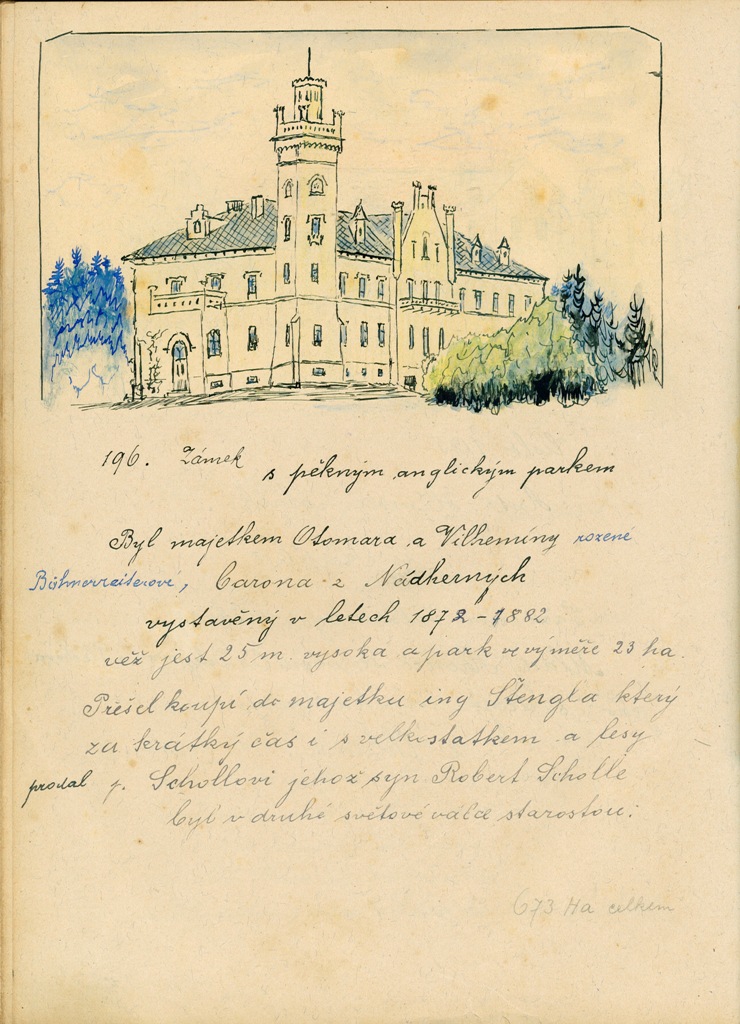 196. Zámek s pěkným anglickým parkem
Byl majetkem Otomara a Vilhemíny rozené
Böhmerreiterové, barona z Nádherných
vystavěný v letech 1872-1882
věž jest 25 m. vysoka a park ve výměře 23 ha.
Přešel koupí do majetku ing Štengla který
za krátký čas i s velkostatkem a lesy
prodal p. Schollovi jehož syn Robert Scholle
byl v druhé světové válce starostou.
673 Ha celkem